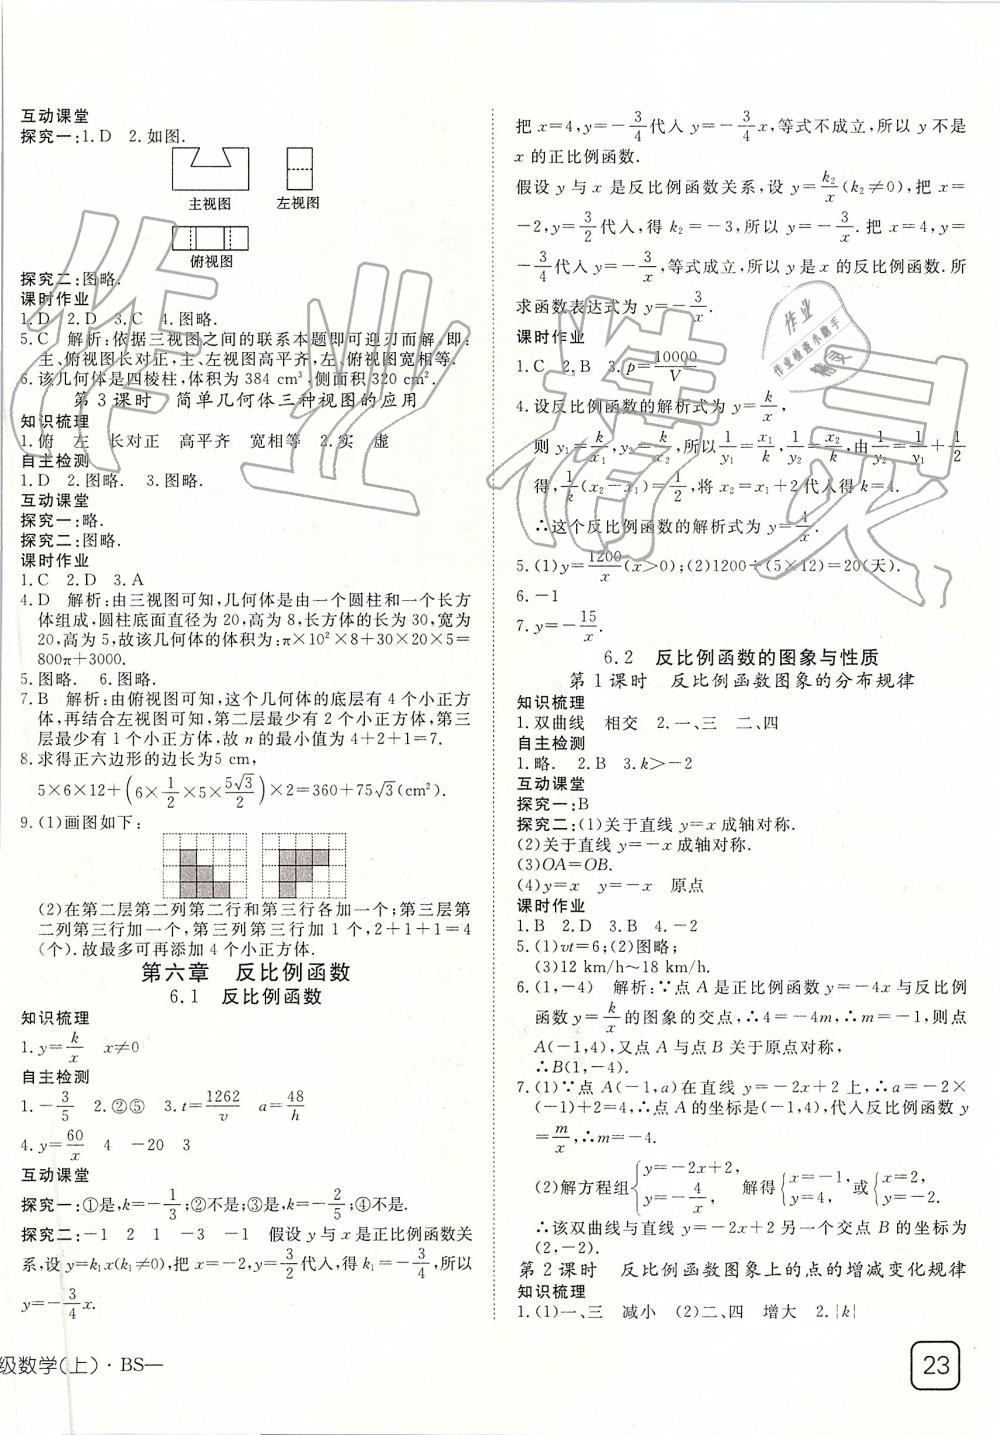 互动课堂
探究一:1.D　2.如图.
主视图　左视图
俯视图
探究二:图略.
课时作业
1.D　2.D　3.C　4.图略.
5.C　解析:依据三视图之间的联系本题即可迎刃而解,即:
主、俯视图长对正,主、左视图高平齐,左、俯视图宽相等.
6.该几何体是四棱柱,体积为 384 cm³,侧面积 320 cm².
第 3 课时　简单几何体三种视图的应用
知识梳理
1.俯　左　长对正　高平齐　宽相等　2.实　虚
自主检测
1.D　2.图略.　3.图略.
互动课堂
探究一:略.
探究二:图略.
课时作业
1.C　2.D　3.A
4.D　解析:由三视图可知,几何体是由一个圆柱和一个长方
体组成,圆柱底面直径为 20,高为 8,长方体的长为 30,宽为
20,高为 5,故该几何体的体积为:π×10²×8+30×20×5=
800π+3000.
5.图略.　6.图略.
7.B　解析:由俯视图可知,这个几何体的底层有 4 个小正方
体,再结合左视图可知,第二层最少有 2 个小正方体,第三
层最少有 1 个小正方体,故 n 的最小值为 4+2+1=7.
8.求得正六边形的边长为5 cm,
5×6×12+(6×1/2×5×5√3/2)×2=360+75√3(cm²).
9.(1)画图如下:
(2)在第二层第二列第二行和第三行各加一个;第三层第
二列第三行加一个,第三列第三行加 1 个,2+1+1=4
(个).故最多可再添加 4 个小正方体.
第六章　反比例函数
6.1　反比例函数
知识梳理
1.y=k/x　x≠0
自主检测
1.-3/5　2.②⑤　3.t=1262/v　a=48/h
4.y=60/x　4　-20　3
互动课堂
探究一:①是,k=-1/3;②不是;③是,k=-2/5;④不是.
探究二:-1　2　1　-3　-1　假设 y 与 x 是正比例函数关
系,设 y=k₁x(k₁≠0),把 x=-2,y=3/2代入,得 k₁=-3/4,所以
y=-3/4x.
级数学(上)·BS—
把 x=4,y=-3/4代入 y=-3/4x,等式不成立,所以 y 不是
x 的正比例函数.
假设 y 与 x 是反比例函数关系,设 y=k₂/x(k₂≠0),把 x=
-2,y=3/2代入,得 k₂=-3,所以 y=-3/x.把 x=4,y=
-3/4代入 y=-3/x,等式成立,所以 y 是 x 的反比例函数.所
求函数表达式为 y=-3/x.
课时作业
1.C　2.B　3.p=10000/V
4.设反比例函数的解析式为 y=k/x,
则 y₁=k/x₁,y₂=k/x₂,所以1/y₁=x₁/k,1/y₂=x₂/k,由1/y₂=1/y₁+1/2
得,1/k(x₂-x₁)=1/2,将 x₂=x₁+2代入得 k=4.
∴这个反比例函数的解析式为 y=4/x.
5.(1)y=1200/x(x>0);(2)1200÷(5×12)=20(天).
6.-1
7.y=-15/x.
6.2　反比例函数的图象与性质
第 1 课时　反比例函数图象的分布规律
知识梳理
1.双曲线　相交　2.一、三　二、四
自主检测
1.略.　2.B　3.k>-2
互动课堂
探究一:B
探究二:(1)关于直线 y=x 成轴对称.
(2)关于直线 y=-x 成轴对称.
(3)OA=OB.
(4)y=x　y=-x　原点
课时作业
1.B　2.D　3.B　4.-2
5.(1)vt=6;(2)图略;
(3)12 km/h～18 km/h.
6.(1,-4)　解析:∵点 A 是正比例函数 y=-4x 与反比例
函数 y=k/x的图象的交点,∴4=-4m,∴m=-1,则点
A(-1,4),又点 A 与点 B 关于原点对称,
∴B(1,-4).
7.(1)∵点 A(-1,a)在直线 y=-2x+2 上,∴a=-2×
(-1)+2=4,∴点 A 的坐标是(-1,4),代入反比例函数 y
=m/x,∴m=-4.
(2)解方程组{y=-2x+2, y=-4/x,　解得{x=-1, y=4,或{x=2, y=-2.
∴该双曲线与直线 y=-2x+2 另一个交点 B 的坐标为
(2,-2).
第 2 课时　反比例函数图象上的点的增减变化规律
知识梳理
1.(1)一、三　减小　(2)二、四　增大　2.|k|
23
作业精灵
作业
作业检查小助手
精灵